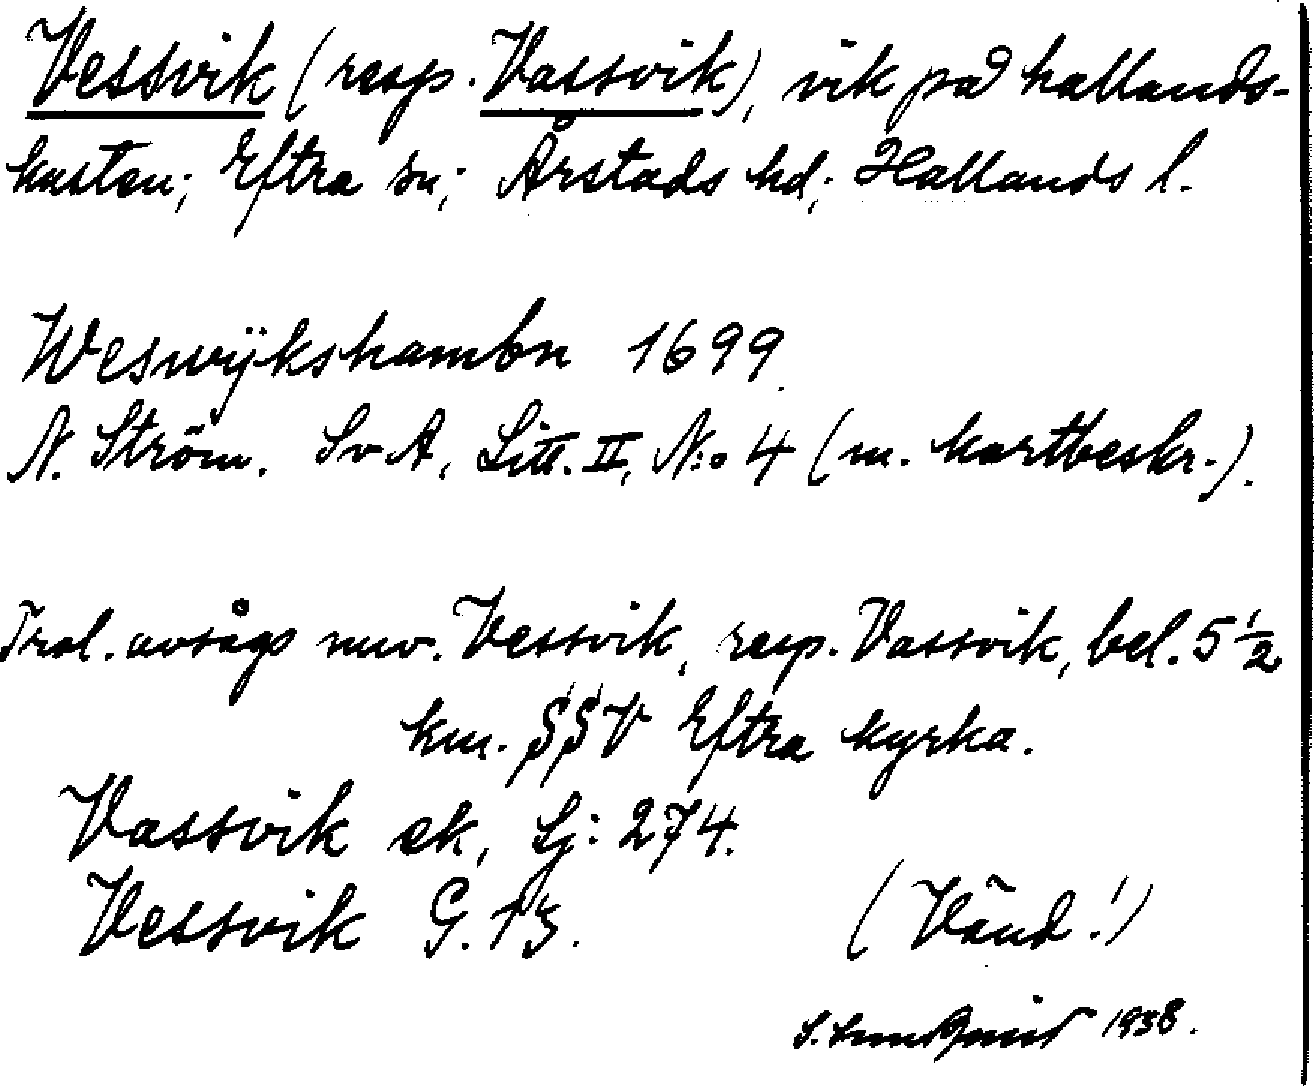 Vessvik (resp. Vassvik), vik på hallands-
kusten; Eftra sn; Årstads hd; Hallands l.
Weswÿkshambn 1699.
N. Ström. SvA, Litt. II, N:o 4 (m. kartbeskr.).
Trol. avsågs nuv. Vessvik, resp. Vassvik, bel. 5 1/2
km. SSV Eftra kyrka.
Vassvik ek, Sj: 274.
Vessvik G. 13.
(Vänd!)
S. 1938.